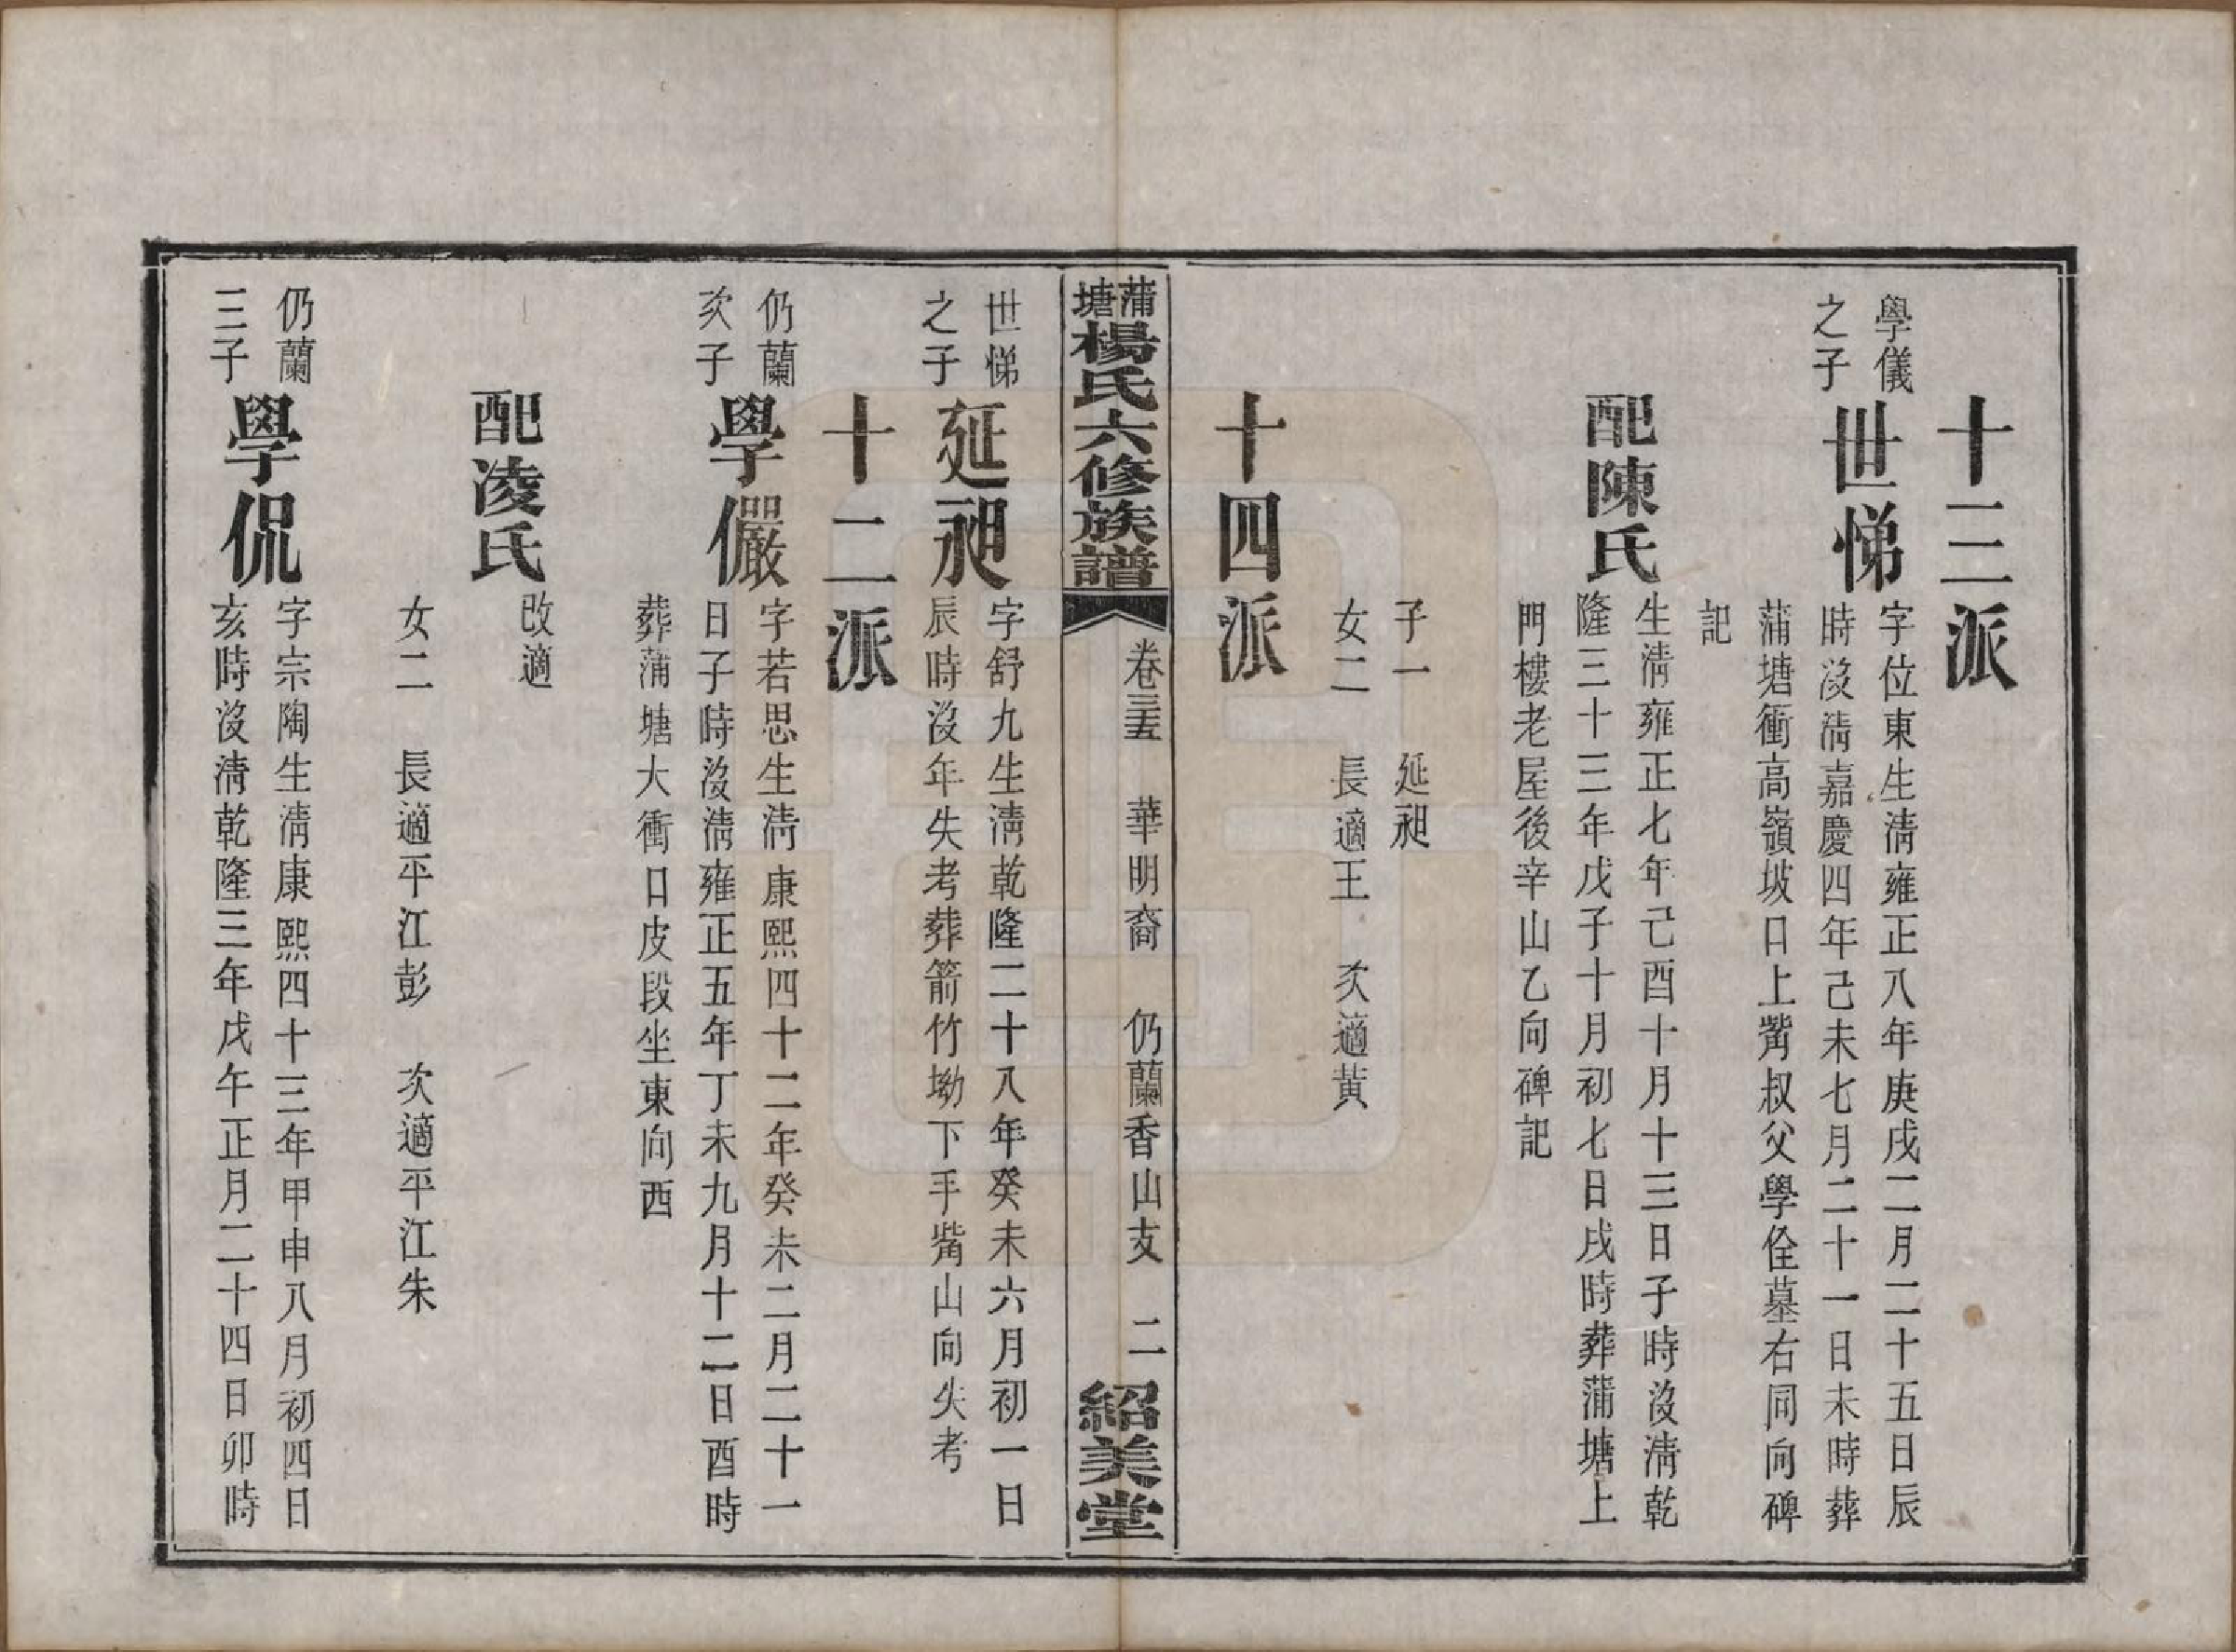 十三派
學儀
之子
世悌
字位東生清雍正八年庚戌二月二十五日辰
時沒清嘉慶四年己未七月二十一日未時葬
蒲塘衝高嶺坡口上觜叔父學佺墓右同向碑
記
配陳氏
生清雍正七年己酉十月十三日子時沒清乾
隆三十三年戊子十月初七日戌時葬蒲塘上
門樓老屋後辛山乙向碑記
子一 延昶
女二 長適王 次適黃
十四派
蒲塘楊氏六修族譜
卷三五 華明裔 仍蘭香山支 二
紹美堂
世悌
之子
延昶
字舒九生清乾隆二十八年癸未六月初一日
辰時沒年失考葬箭竹坳下手觜山向失考
十二派
仍蘭
次子
學儼
字若思生清康熙四十二年癸未二月二十一
日子時沒清雍正五年丁未九月十二日酉時
葬蒲塘大衝口皮段坐東向西
配凌氏
改適
女二 長適平江彭 次適平江朱
仍蘭
三子
學侃
字宗陶生清康熙四十三年甲申八月初四日
亥時沒清乾隆三年戊午正月二十四日卯時